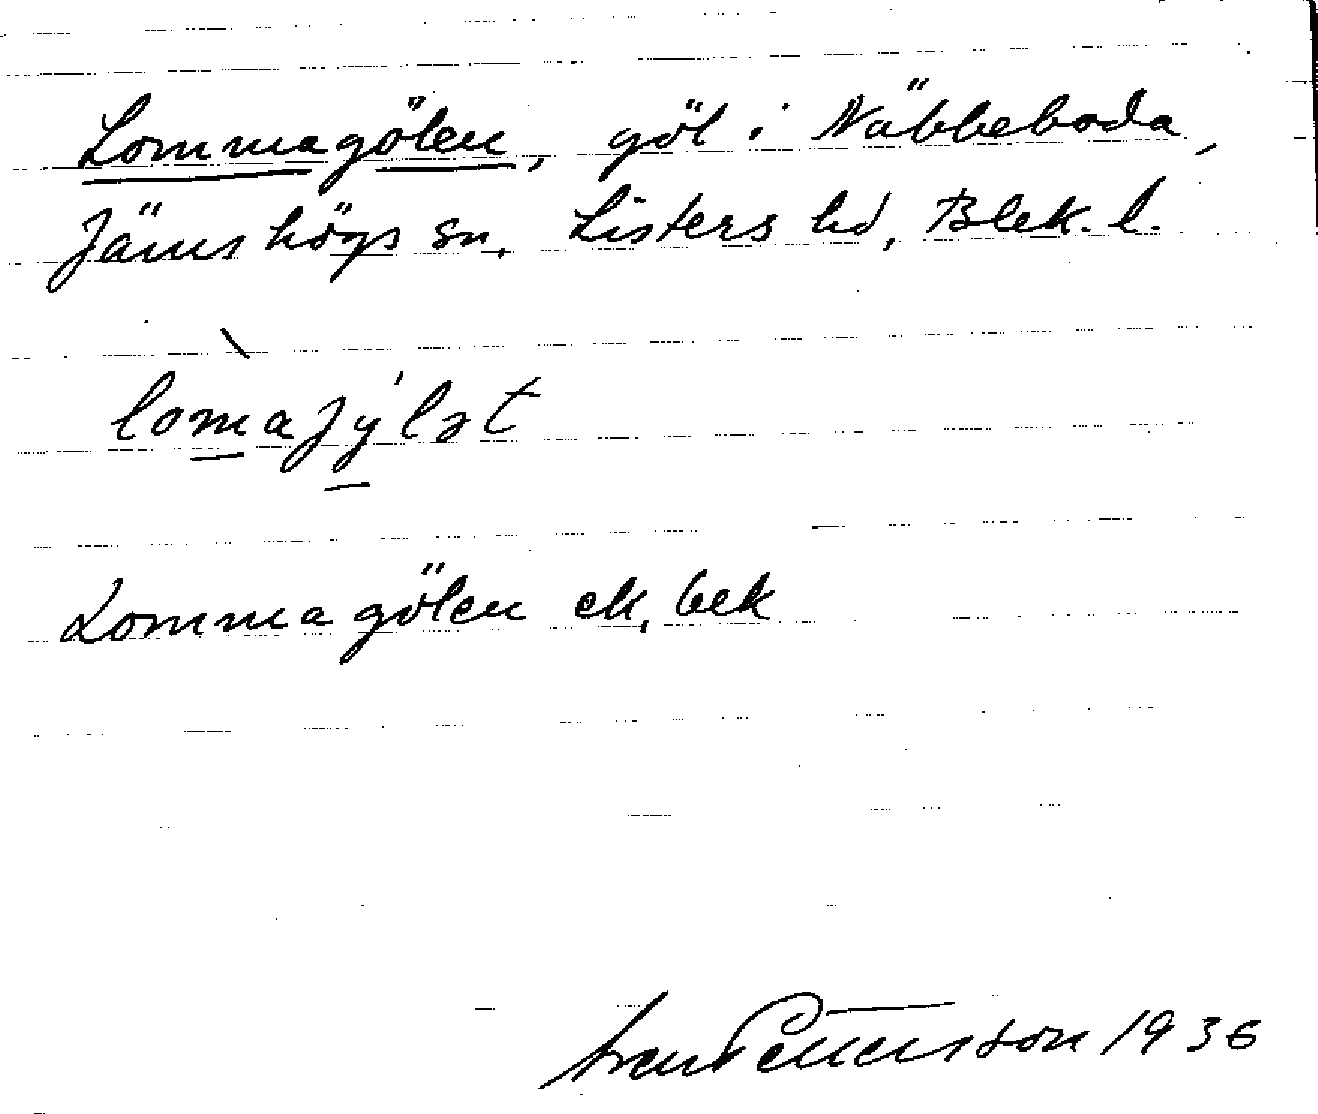 Lommagölen, göl i Näbbeboda,
Jämshögs sn, Listers hd, Blek. l.
lòmajýlət
Lommagölen ek, bek
Pettersson 1936